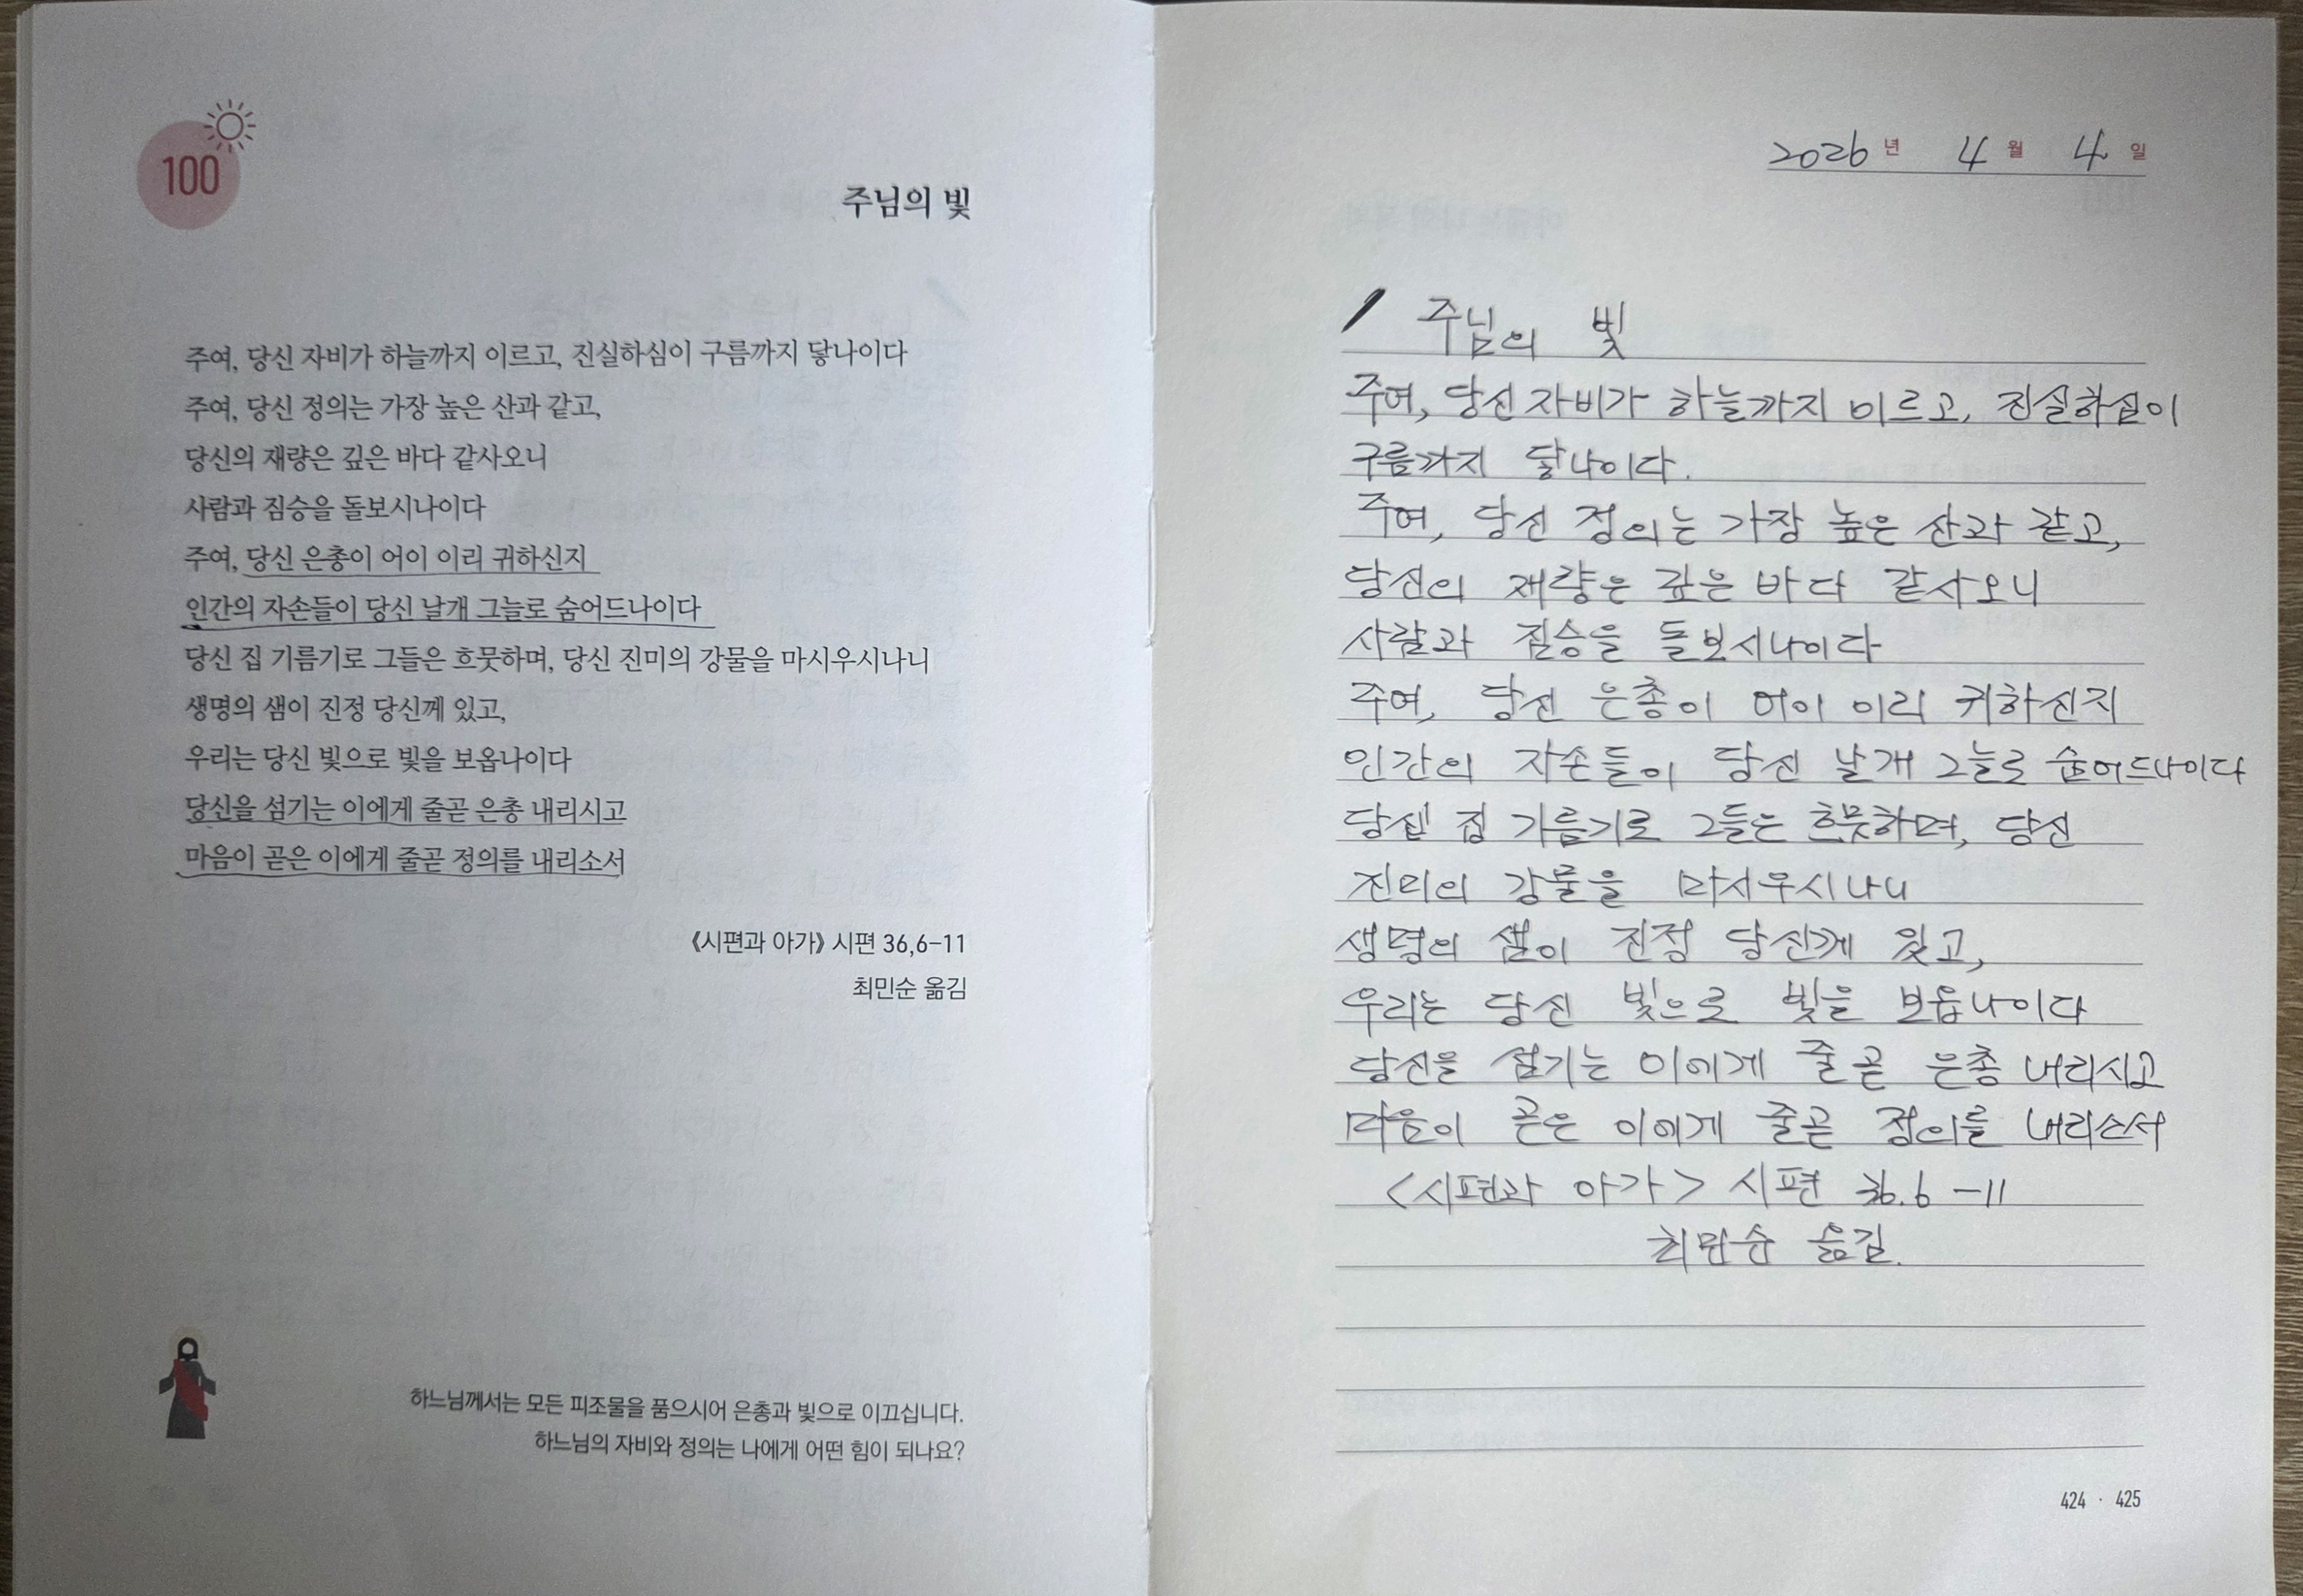 100
주님의 빛
주여, 당신 자비가 하늘까지 이르고, 진실하심이 구름까지 닿나이다
주여, 당신 정의는 가장 높은 산과 같고,
당신의 재량은 깊은 바다 같사오니
사람과 짐승을 돌보시나이다
주여, 당신 은총이 어이 이리 귀하신지
인간의 자손들이 당신 날개 그늘로 숨어드나이다
당신 집 기름기로 그들은 흐뭇하며, 당신 진미의 강물을 마시우시나니
생명의 샘이 진정 당신께 있고,
우리는 당신 빛으로 빛을 보옵나이다
당신을 섬기는 이에게 줄곧 은총 내리시고
마음이 곧은 이에게 줄곧 정의를 내리소서
《시편과 아가》 시편 36,6-11
최민순 옮김
하느님께서는 모든 피조물을 품으시어 은총과 빛으로 이끄십니다.
하느님의 자비와 정의는 나에게 어떤 힘이 되나요?
2026년 4월 4일
주님의 빛
주여, 당신 자비가 하늘까지 이르고, 진실하심이
구름까지 닿나이다.
주여, 당신 정의는 가장 높은 산과 같고,
당신의 재량은 깊은 바다 같사오니
사람과 짐승을 돌보시나이다
주여, 당신 은총이 어이 이리 귀하신지
인간의 자손들이 당신 날개 그늘로 숨어드나이다
당신 집 기름기로 그들은 흐뭇하며, 당신
진미의 강물을 마시우시나니
생명의 샘이 진정 당신께 있고,
우리는 당신 빛으로 빛을 보옵나이다
당신을 섬기는 이에게 줄곧 은총 내리시고
마음이 곧은 이에게 줄곧 정의를 내리소서
<시편과 아가> 시편 36.6-11
최민순 옮김.
424 · 425